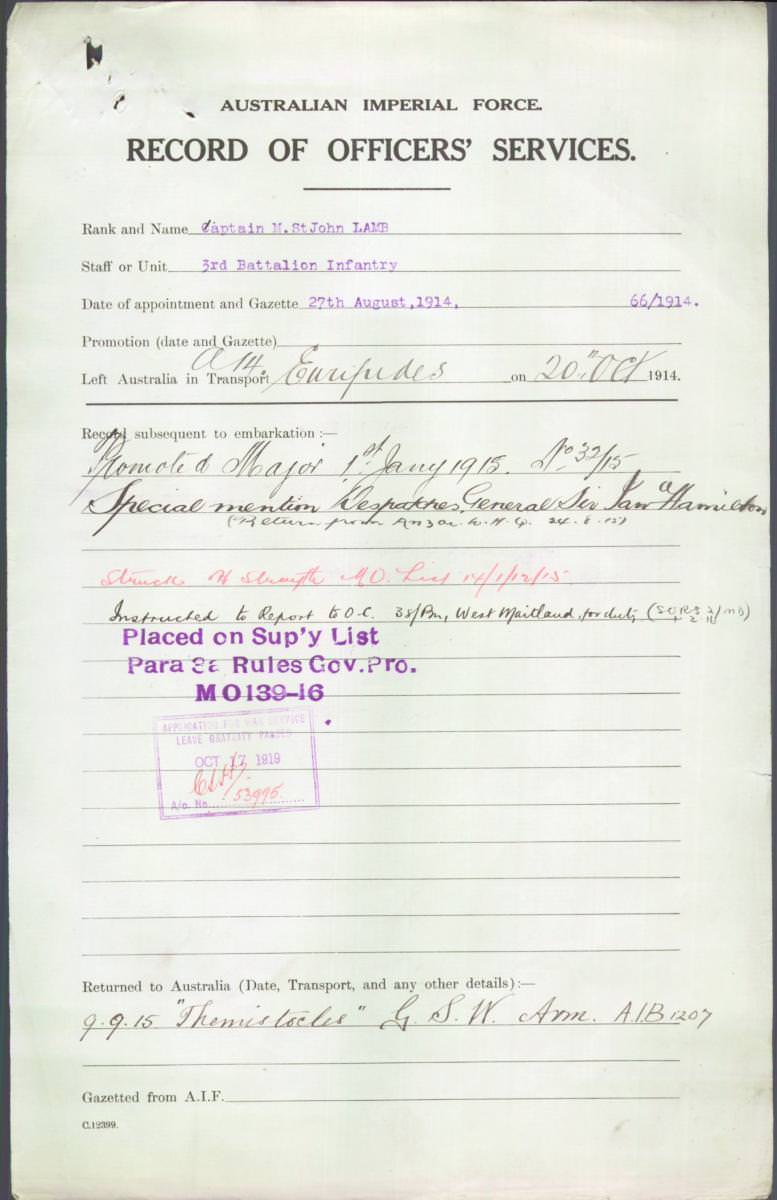 AUSTRALIAN IMPERIAL FORCE.
RECORD OF OFFICERS' SERVICES.
Rank and Name Captain M.StJohn LAMB
Staff or Unit 3rd Battalion Infantry
Date of appointment and Gazette 27th August,1914, 66/1914.
Promotion (date and Gazette)
A 14.
Left Australia in Transport Euripides on 20th Oct 1914.
Record subsequent to embarkation :—
Promoted Major 1st Jany 1915. No 32/15
Special mention Despatches General Sir Ian Hamilton
(Return from Anzac G.H.Q. 24.8.15)
Struck off Strength M.O. List 14/1/12/15
Instructed to Report to O.C. 38/Bn, West Maitland, for duty
Placed on Sup'y List
Para 3a Rules Gov.Pro.
MO139-16
APPLICATION FOR WAR SERVICE
LEAVE GRATUITY PASSED
OCT 17 1919
A/c. No. 53995
Returned to Australia (Date, Transport, and any other details) :—
9.9.15 "Themistocles" G. S. W. Arm. A.I.B 1207
Gazetted from A.I.F.
C.12399.